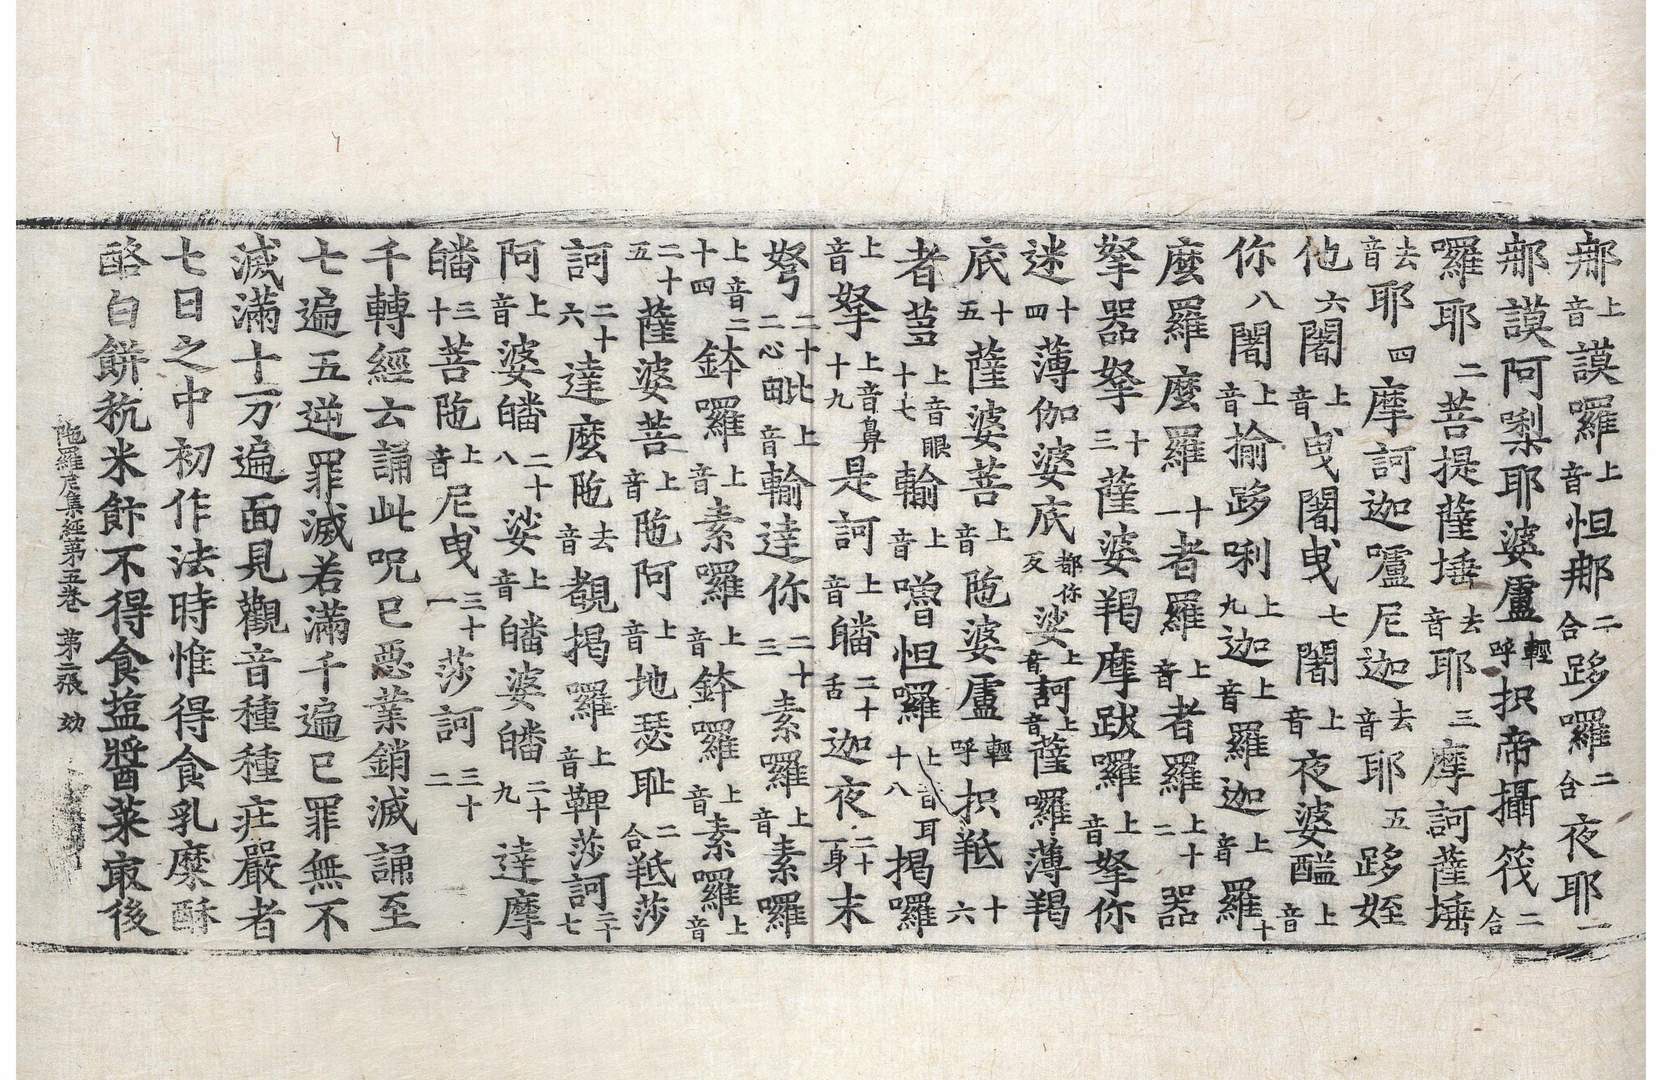 那上音謨羅上音怛那二合跢囉二合夜耶一
那謨阿㗚耶婆盧輕呼抧帝攝筏二合
囉耶二菩提薩埵去音耶三摩訶薩埵
去音耶四摩訶迦嚧尼迦去音耶五跢姪
他六闍上音曳闍曳七闍上音夜婆醯上音
你八闍上音揄跢唎上九迦上音羅迦上音羅十
麼羅麼羅十一者羅上音者羅上十二器
拏器拏十三薩婆羯摩跋囉上音拏你
迷十四薄伽婆底都你反娑上音訶上音薩囉薄羯
底十五薩婆菩上音陁婆盧輕呼抧羝十六
者蒭上音眼十七輸上音噜怛囉上音耳十八揭囉
上音拏上音鼻十九是訶上音皤二十舌迦夜二十一身末
弩二十二心毗上音輸達你二十三素囉上音素囉
上音二十四鉢囉上音素囉上音鉢囉上音素囉上音
二十五薩婆菩上音陁阿上音地瑟耻二合羝莎
訶二十六達麼陁去音覩揭囉上音鞞莎訶二十七
阿上音婆皤二十八娑上音皤婆皤二十九達摩
皤三十菩陁上音尼曳三十一莎訶三十二
千轉經云誦此呪已惡業銷滅誦至
七遍五逆罪滅若滿千遍已罪無不
滅滿十万遍面見觀音種種庄嚴者
七日之中初作法時惟得食乳糜酥
酪白餅秔米飰不得食盐醬菜㝡後
陁羅尼集經第五卷 第二張 効